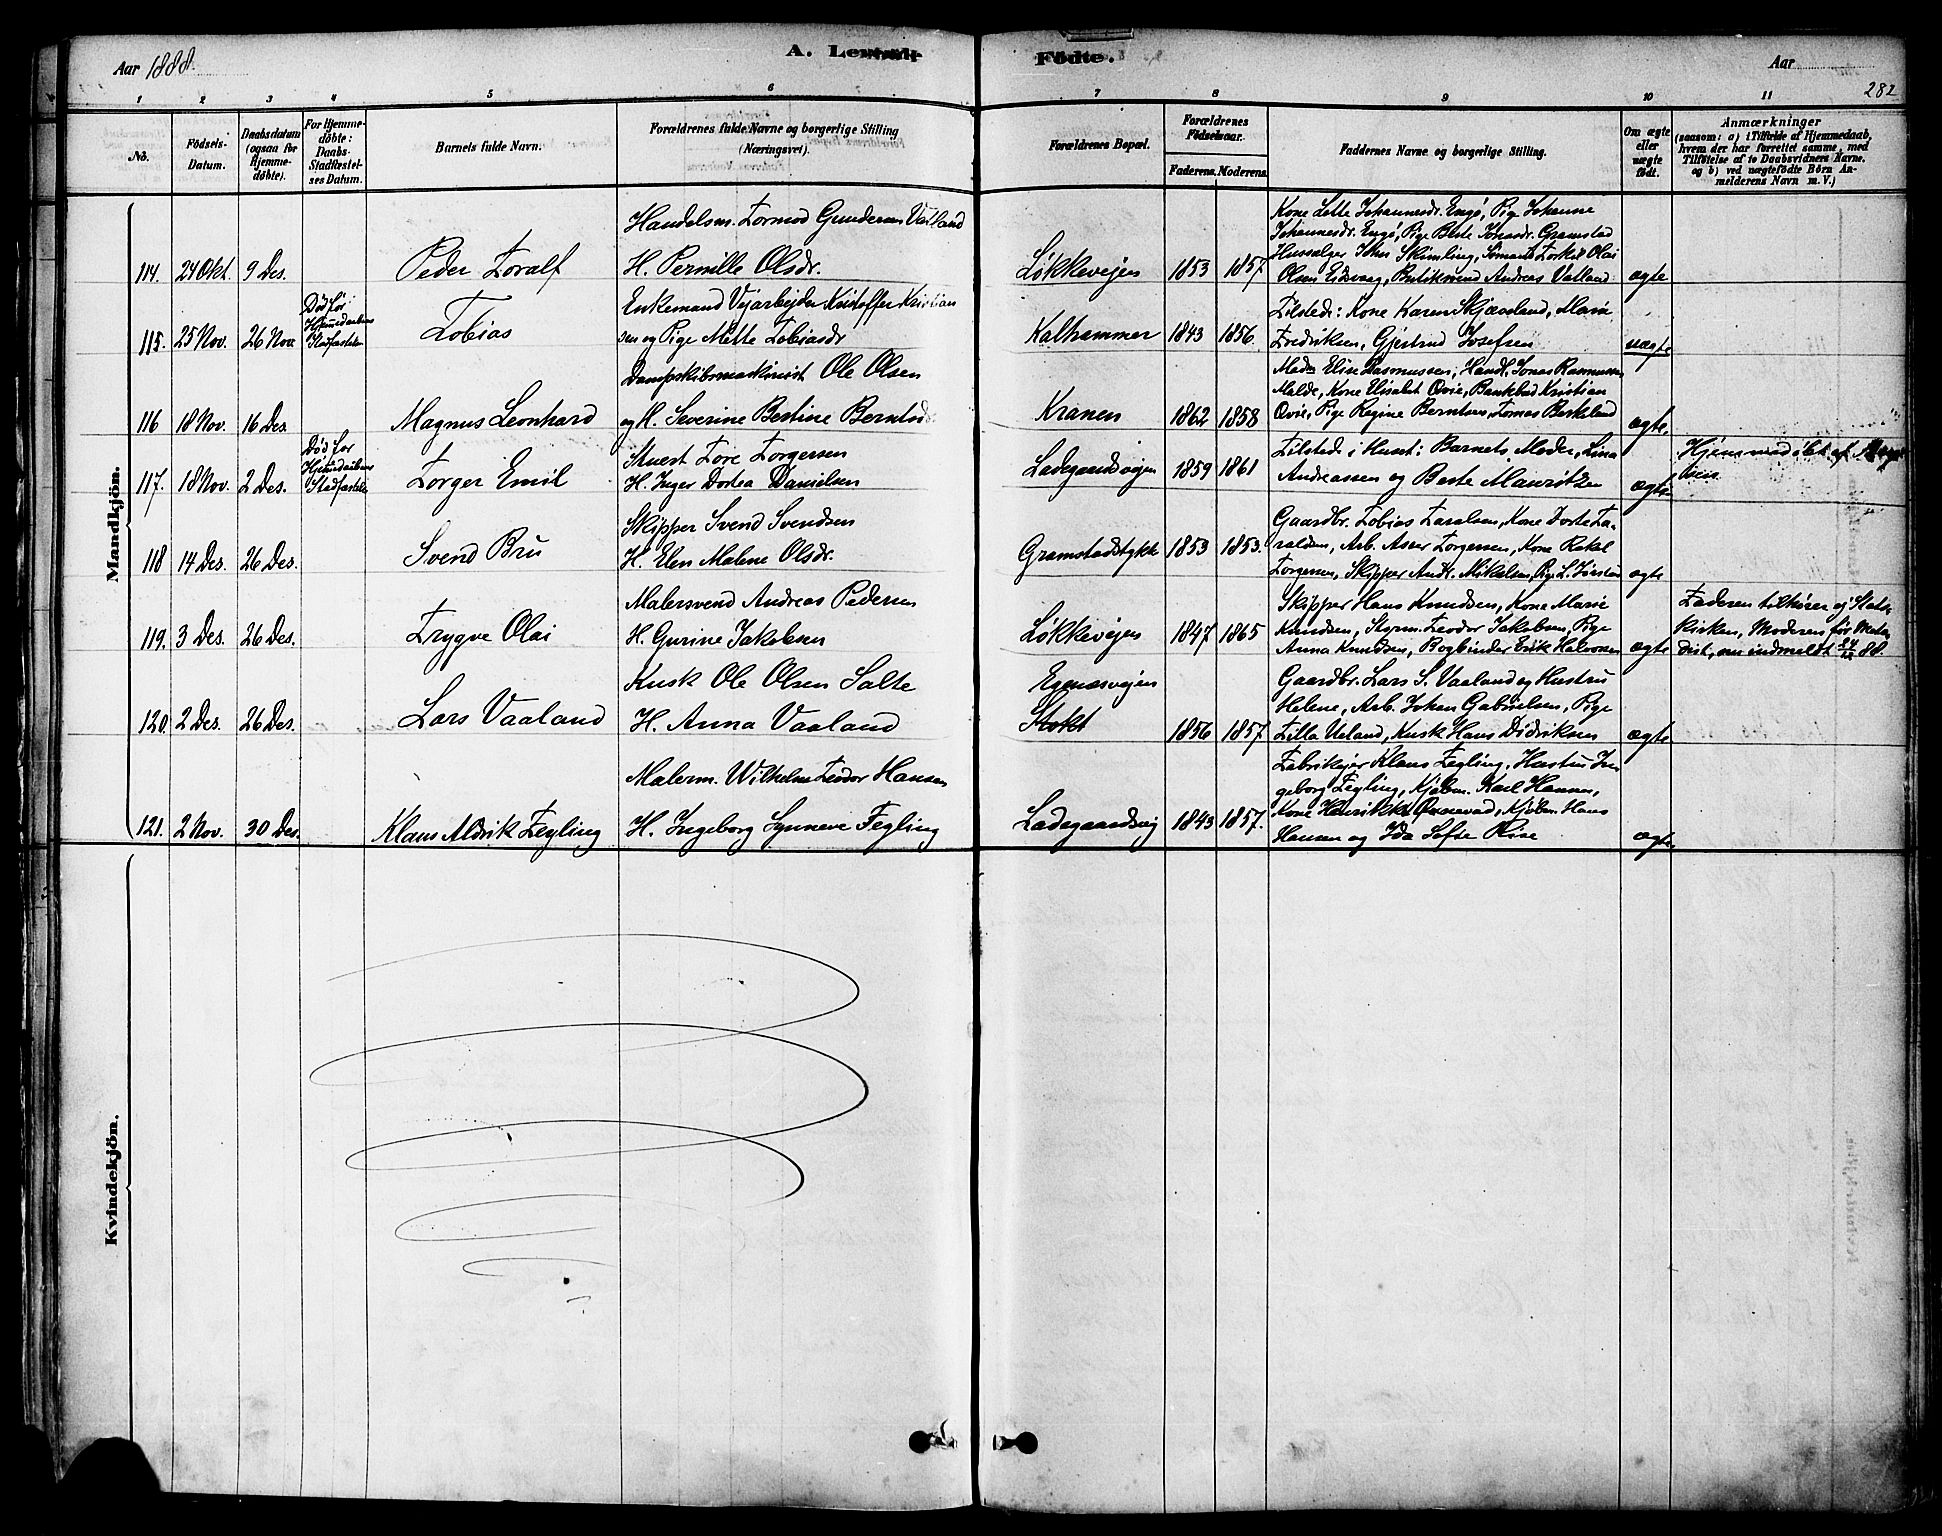 Aar 1888.
A. Levende
Födte.
Aar
282
1 2 3 4 5 6 7 8 9 10 11
No.
Födsels-
Datum.
Daabsdatum
(ogsaa for
Hjemme-
döbte).
For Hjemme-
döbte:
Daabs-
Stadfæstel-
ses Datum.
Barnets fulde Navn.
Forældrenes fulde Navne og borgerlige Stilling
(Næringsvei).
Forældrenes Bopæl.
Forældrenes
Födselsaar.
Faderens. Moderens.
Faddernes Navne og borgerlige Stilling.
Om ægte
eller
uægte
födt.
Anmærkninger
(saasom: a) i Tilfælde af Hjemmedaab,
hvem der har forrettet samme, med
Tilföielse af to Daabsvidners Navne,
og b) ved uægtefödte Börn An-
melderens Navn m. V.)
Mandkjön.
114. 24 Okt. 9 Des.
Peder Toralf
Handelsm. Tormod Gundersen Vatland
H. Pernille Olsdr.
Løkkevejen 1853 1857
Kone Lotte Johannesdr. Engø, Pige Johanne
Johannesdr. Engø, Pige Berte Jonasdr. Gramstad
Hussælger John Skimling, Sømand Torkel Olai
Olsen Eidsvaag, Butiksvend Andreas Vatland.
ægte
115. 25 Nov. 26 Nov.
Død før
Hjemmedaabens
Stadfæstelse
Tobias
Enkemand Vejarbejder Kristoffer Kristian
sen og Pige Mette Tobiasdr
Kalhammer 1843 1856.
Tilstede: Kone Karen Skjæveland, Marie
Fredriksen, Gjertrud Josefsen
uægte
116 18 Nov. 16 Des
Magnus Leonhard
Dampskibsmaskinist Ole Olsen
og H. Severine Bertine Berntsd
Kranen 1862 1858
Mad. Elise Rasmussen, Handl. Jonas Rasmussen
Malde, Kone Elisabet Qvie, Bankbud Kristian
Qvie, Pige Regine Berntsen, Tomas Birkeland
ægte.
117. 18 Nov. 2 Des.
Død før
Hjemmedaabens
Stadfæstelse
Torger Emil
Stuert Tore Torgersen
H. Inger Dortea Danielsen
Ladegaardsvejen 1859 1861
Tilstede i Huset: Barnets Moder, Lina
Andreassen og Berte Mauritzen
ægte
Hjemmedøbt af
118 14 Des. 26 Des.
Svend Bru
Skipper Svend Svendsen
H. Elen Malene Olsdr.
Gramstadstykke 1853 1853.
Gaardbr. Tobias Taralsen, Kone Dorte Ta-
raldsen, Arb. Aser Torgersen, Kone Rakel
Torgersen, Skipper Andr. Mikelsen, Pige L.
ægte
119. 3 Des. 26 Des.
Trygve Olai
Malersvend Andreas Pedersen
H. Gurine Jakobsen
Løkkevejen 1847 1865
Skipper Hans Knudsen, Kone Marie
Knudsen, Styrm. Teodor Jakobsen, Pige
Anna Knudsen, Bogbinder Erik Halvorsen
ægte
Faderen tilhører ej Stats
kirken, Moderen før Meto
dist, nu indmeldt 24/12 88.
120. 2 Des. 26 Des.
Lars Vaaland
Kusk Ole Olsen Salte
H. Anna Vaaland
Egenæsvejen
Stokt
1856 1857
Gaardbr. Lars S. Vaaland og Hustru
Helene, Arb. Johan Gabrielsen, Pige
Tilla Ueland, Kusk Hans Didriksen
ægte
121. 2 Nov. 30 Des.
Klaus Aldrik Tegling
Malerm. Wilhelm Teodor Hansen
H. Ingeborg Synneve Tegling
Ladegaardsvej 1843 1857.
Fabrikejer Klaus Tegling, Hustru In
geborg Tegling, Kjøbm. Karl Hansen,
Kone Henrikke Qvinevad, Kjøbm. Hans
Hansen og Ida Sofie Rise
ægte.
Kvindekjön.